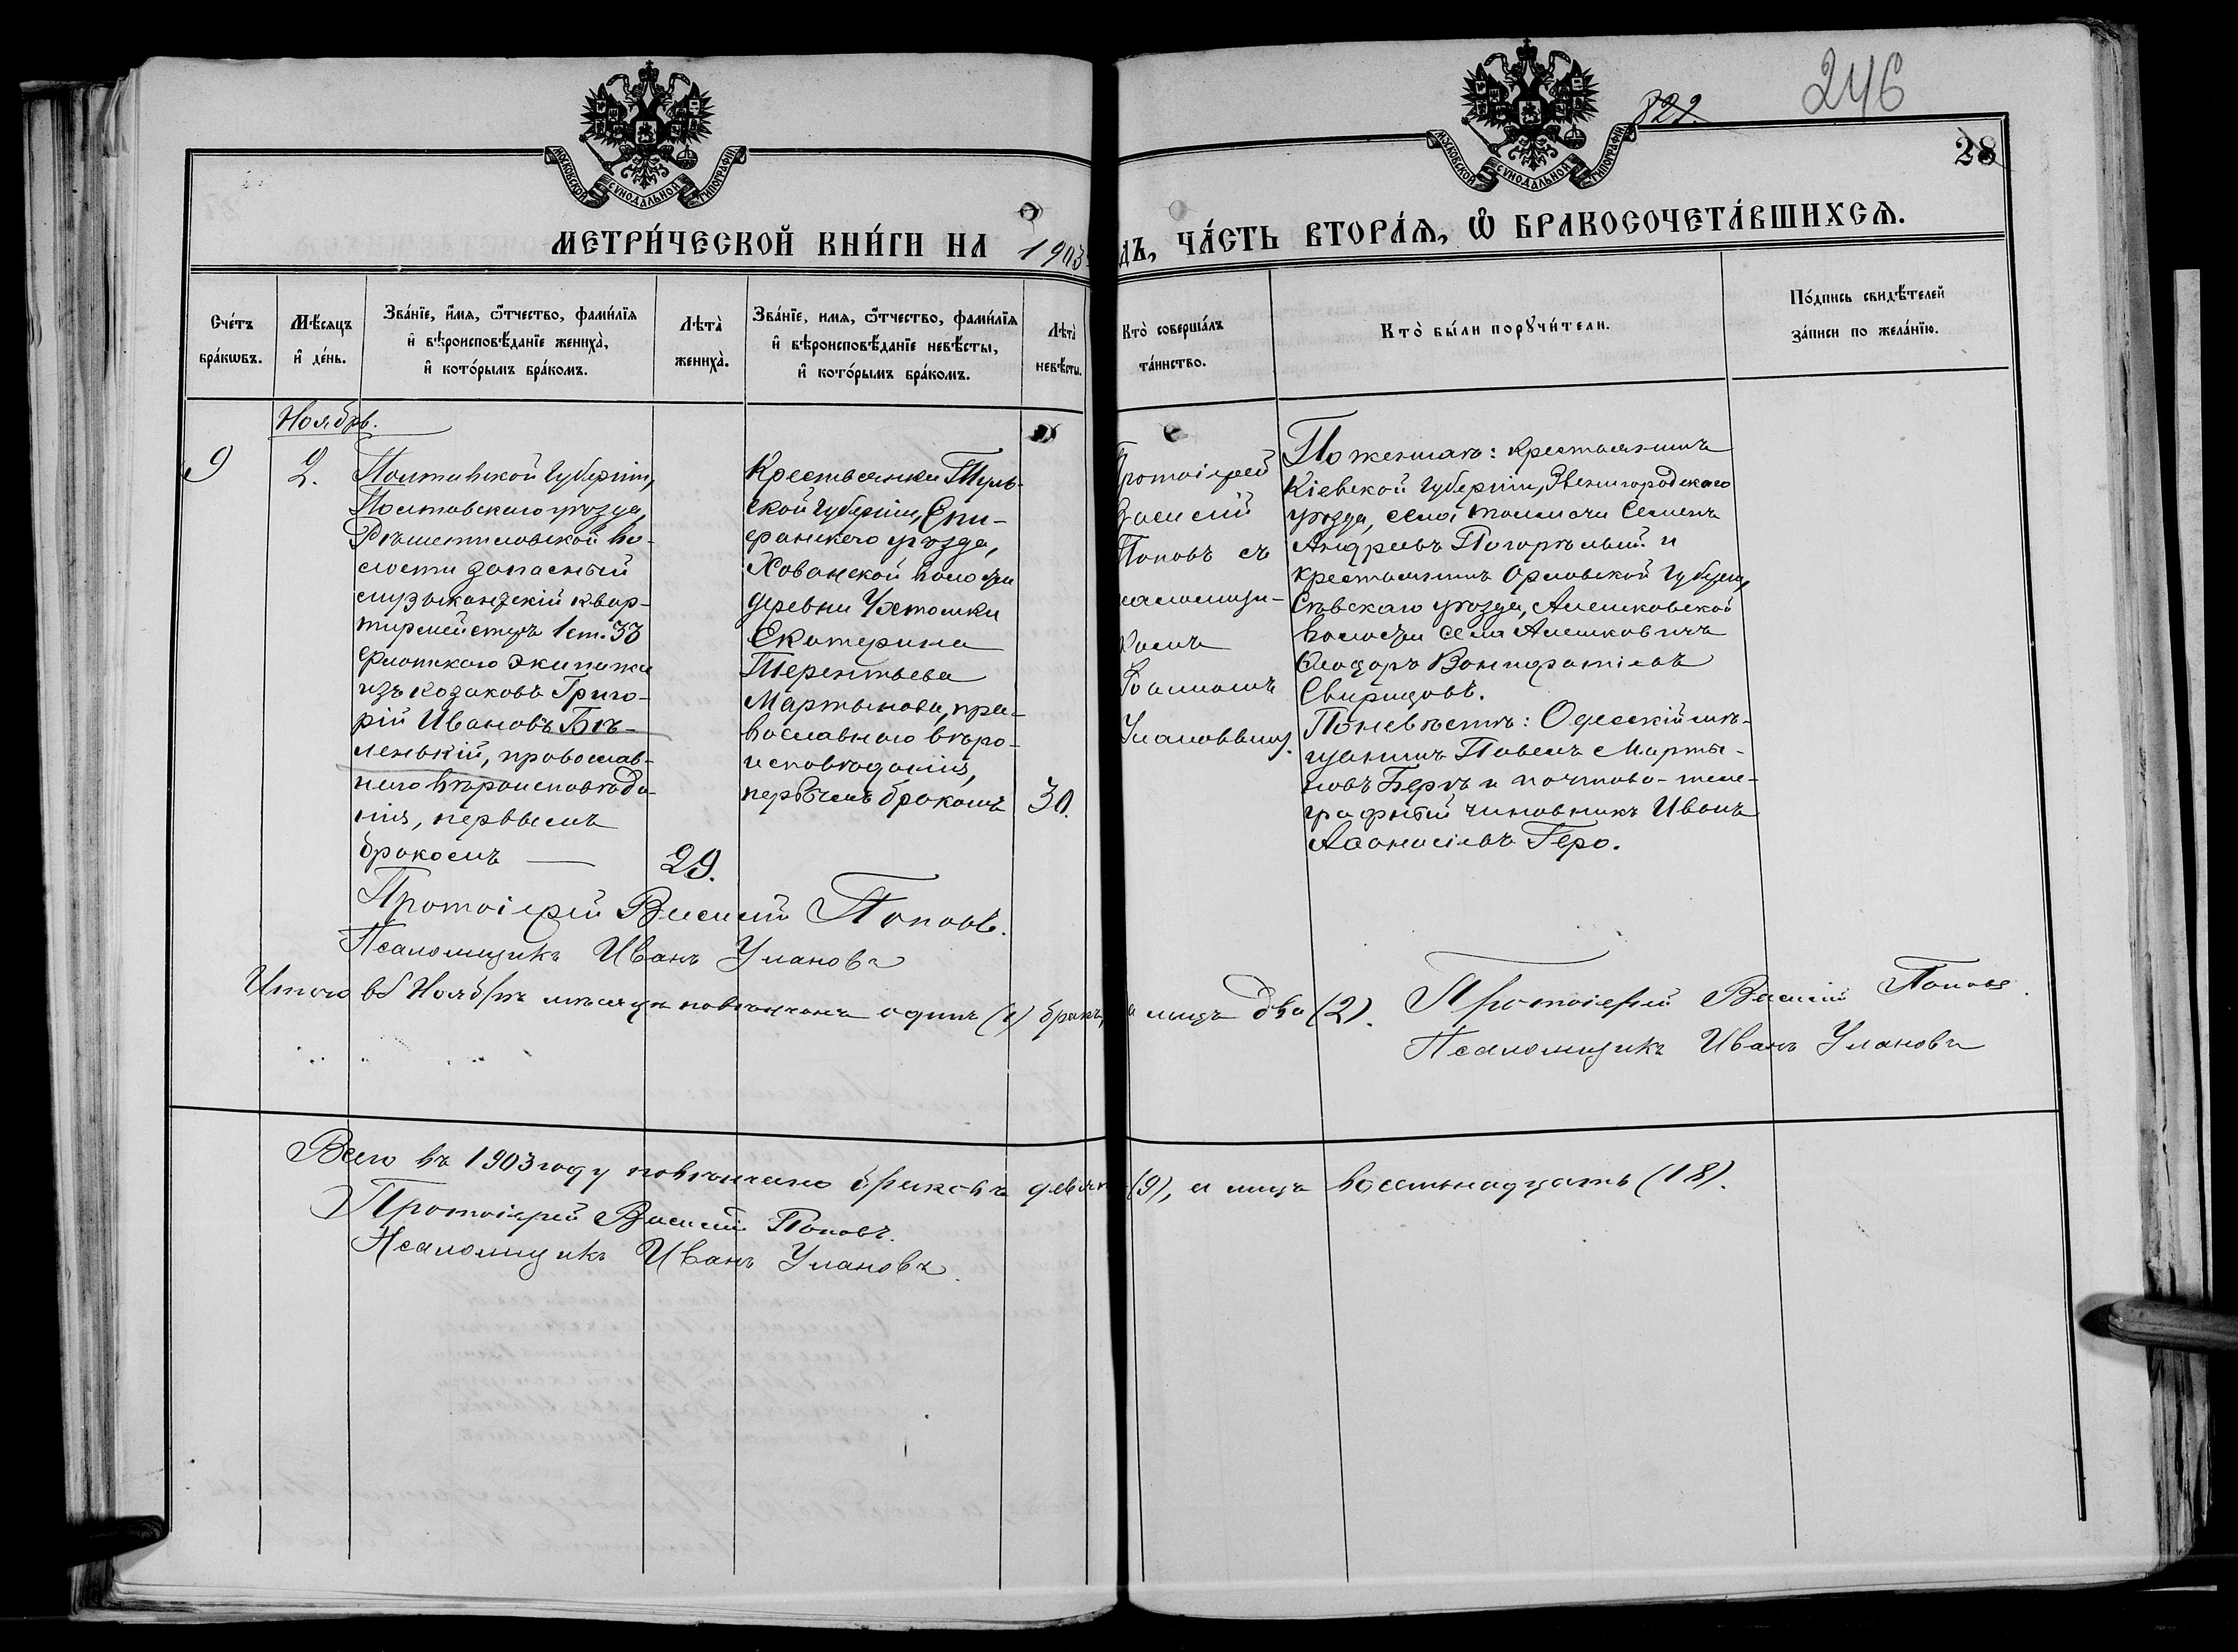 246
822.
28
МОСКОВСКОЙ СѴНОДАЛЬНОЙ ТИПОГРАФІИ
МОСКОВСКОЙ СѴНОДАЛЬНОЙ ТИПОГРАФІИ
МЕТРИ́ЧЕСКОЙ КНИ́ГИ НА 1903
ДЪ, ЧА́СТЬ ВТОРА́Я, Ѡ҆ БРАКОСОЧЕТА́ВШИХСЯ.
Сче́тъ
бра́кѡвъ.
Мѣ́сяцъ
и҆ де́нь.
Зва́нїе, и҆́мя, ѻ҆́тчество, фами́лїя
и҆ вѣроисповѣ́данїе жениха̀,
и҆ кото́рымъ бра́комъ.
Лѣта̀
жениха̀.
Зва́нїе, имя, ѻ҆́тчество, фами́лїя
и҆ вѣроисповѣ́данїе невѣ́сты,
и҆ кото́рымъ бра́комъ.
Лѣта̀
невѣ́сты.
Кто̀ соверша́лъ
та́инство.
Кто̀ бы́ли порꙋчи́тели.
По́дпись свидѣ́телей
за́писи по жела́нїю.
Ноябрь.
9
2.
Полтавской Губерніи,
Полтавскаго уѣзда,
Рѣшетиловской во-
лости запасный
музыкантскій квар-
тирмейстръ 1 ст. 33
флотскаго экипажа
изъ козаковъ Григо-
рій Ивановъ Бѣ-
ленькій, православ-
наго вѣроисповѣда-
нія, первымъ
бракомъ —
29.
Крестьянка Туль-
ской Губерніи, Епи-
фанскаго уѣзда,
Хованской волости
деревни
Екатерина
Терентьева
Мартынова, пра-
вославнаго вѣро-
исповѣданія,
первымъ бракомъ
30.
Протоіерей
Василій
Поповъ съ
псаломщи-
комъ
Іоанномъ
Улановымъ.
По женихѣ: крестьянинъ
Кіевской Губерніи, Звенигородскаго
уѣзда, села Толмачи Семенъ
Андреевъ Погорѣлый и
крестьянинъ Орловской Губерніи,
Сѣвскаго уѣзда, Алешковской
волости села Алешковичъ
Ѳеодоръ Вонифатіевъ
Свиридовъ.
По невѣстѣ: Одесскій мѣ-
щанинъ Павелъ Марты-
новъ Бергъ и почтово-теле-
графный чиновникъ Иванъ
Аѳанасіевъ Геро.
Протоіерей Василій Поповъ.
Псаломщикъ Иванъ Улановъ
Итого въ Ноябрѣ мѣсяцѣ повѣнчанъ одинъ (1) бракъ, а лицъ два (2).
Протоіерей Василій Поповъ.
Псаломщикъ Иванъ Улановъ
Всего въ 1903 году повѣнчано браковъ девять (9), а лицъ восемьнадцать (18).
Протоіерей Василій Поповъ.
Псаломщикъ Иванъ Улановъ.